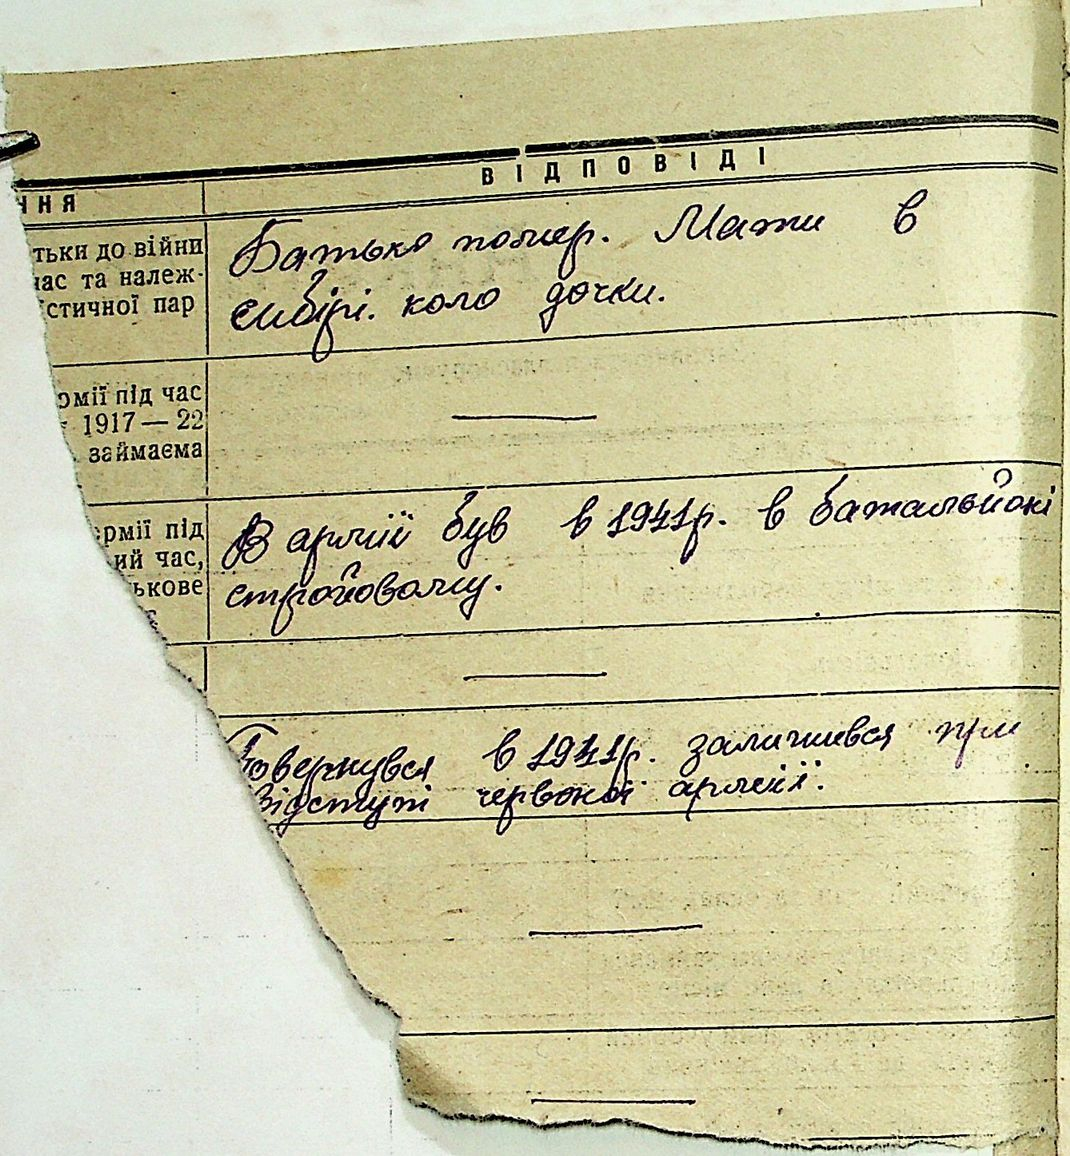 ННЯ
ВІДПОВІДІ
тьки до війни
час та належ-
стичної пар
Батько помер. Мати в
сибірі. коло дочки.
рмії під час
1917 — 22
займаєма
—
рмії під
ий час,
ькове
В армії був в 1941р. в батальйоні
стройовому.
—
Повернувся в 1941р. залишився при
відступі червоної армії.
—
—